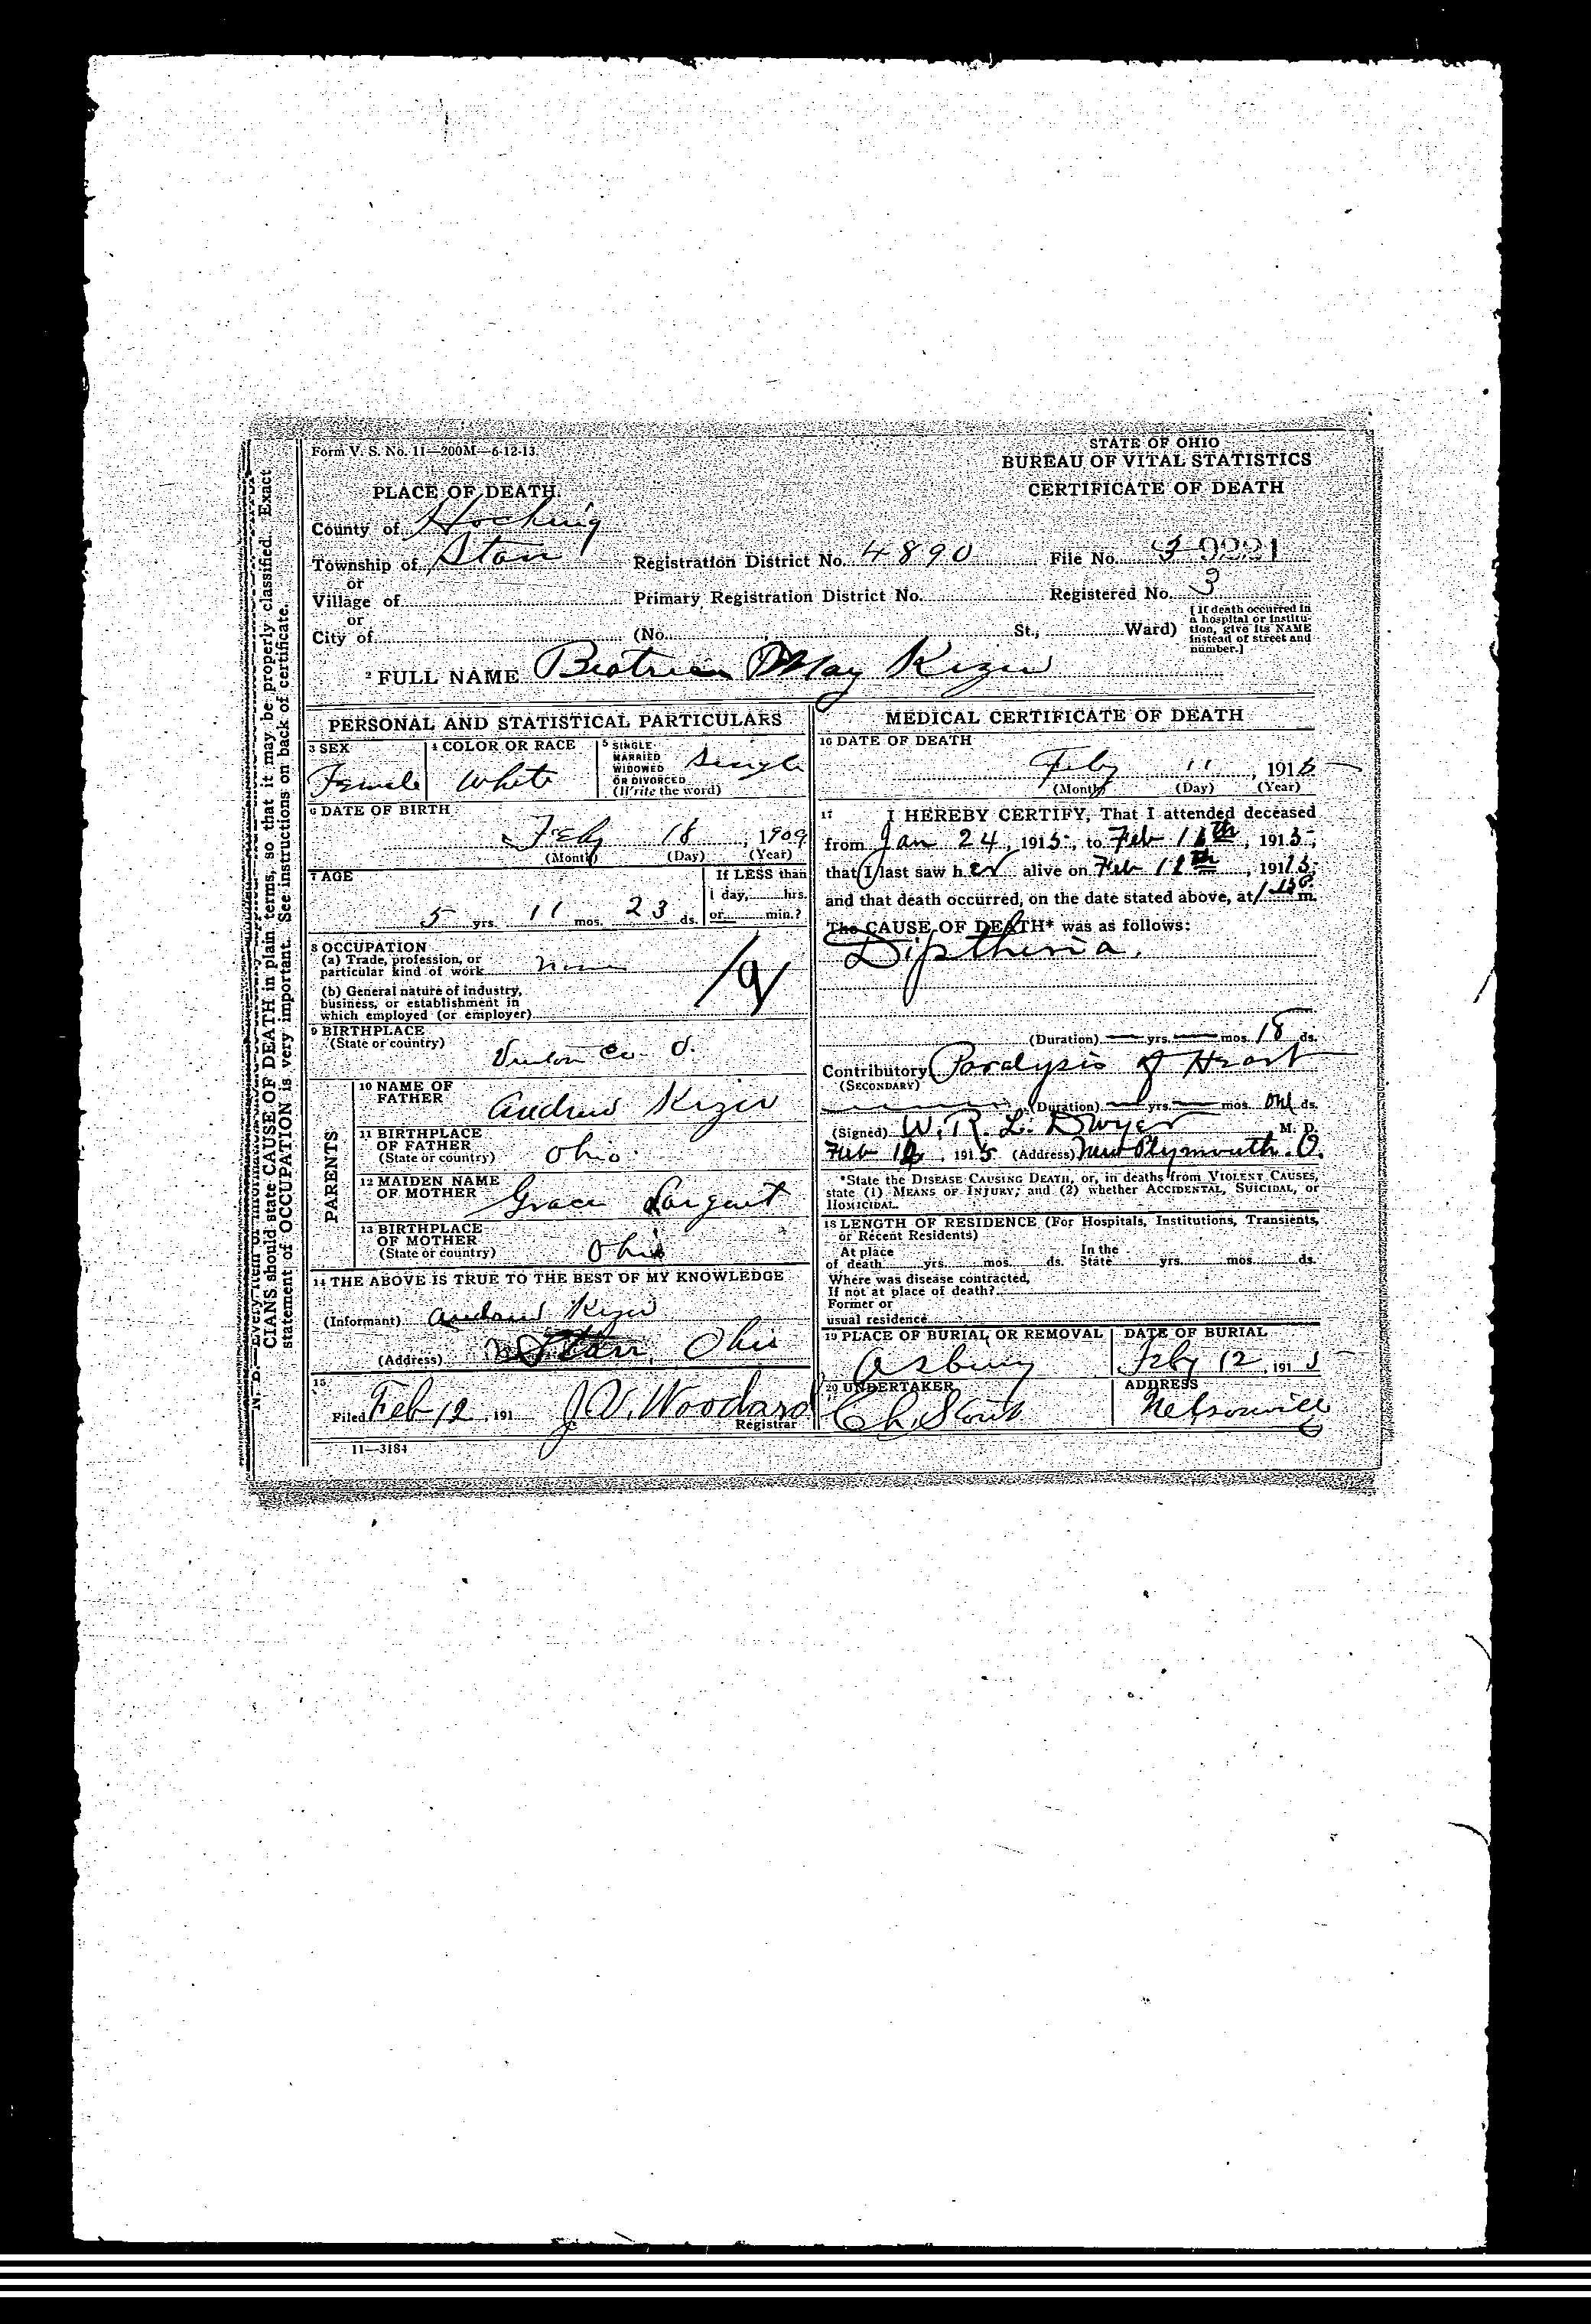 Form V. S. No. 11—200M—6-12-13
STATE OF OHIO
BUREAU OF VITAL STATISTICS
CERTIFICATE OF DEATH
PLACE OF DEATH
County of Hocking
Township of Starr
Registration District No. 4890
File No.
or
Village of
Primary Registration District No.
Registered No. 3
or
City of
(No. St., Ward)
[If death occurred in
a hospital or institu-
tion, give its NAME
instead of street and
number.]
2 FULL NAME Beatrice May Kizer
PERSONAL AND STATISTICAL PARTICULARS
3 SEX
Female
4 COLOR OR RACE
White
5 SINGLE
MARRIED
WIDOWED
OR DIVORCED
(Write the word)
Single
6 DATE OF BIRTH
Feby 18, 1909
(Month) (Day) (Year)
7 AGE
5 yrs. 11 mos. 23 ds.
If LESS than
1 day, hrs.
or min.?
8 OCCUPATION
(a) Trade, profession, or
particular kind of work none
(b) General nature of industry,
business, or establishment in
which employed (or employer)
9 BIRTHPLACE
(State or country)
Vinton Co. O.
PARENTS
10 NAME OF
FATHER
Andrew Kizer
11 BIRTHPLACE
OF FATHER
(State or country)
Ohio
12 MAIDEN NAME
OF MOTHER
Grace Sargent
13 BIRTHPLACE
OF MOTHER
(State or country)
Ohio
14 THE ABOVE IS TRUE TO THE BEST OF MY KNOWLEDGE
(Informant) Andrew Kizer
(Address) Starr, Ohio
15
Filed Feb 12, 191
J. V. Woodard
Registrar
11—3184
MEDICAL CERTIFICATE OF DEATH
16 DATE OF DEATH
Feby 11, 1915
(Month) (Day) (Year)
17 I HEREBY CERTIFY, That I attended deceased
from Jan 24, 1915, to Feb 11th, 1915,
that I last saw her alive on Feb 11th, 1915,
and that death occurred, on the date stated above, at m.
The CAUSE OF DEATH* was as follows:
Diptheria.
(Duration) yrs. mos. 18 ds.
Contributory Paralysis of Heart
(SECONDARY)
(Duration) yrs. mos. one ds.
(Signed) W. R. L. Dwyer M. D.
Feb 12, 1915 (Address) New Plymouth. O.
*State the DISEASE CAUSING DEATH, or, in deaths from VIOLENT CAUSES,
state (1) MEANS OF INJURY; and (2) whether ACCIDENTAL, SUICIDAL, or
HOMICIDAL.
18 LENGTH OF RESIDENCE (For Hospitals, Institutions, Transients,
or Recent Residents)
At place
of death yrs. mos. ds.
In the
State yrs. mos. ds.
Where was disease contracted,
If not at place of death?
Former or
usual residence
19 PLACE OF BURIAL OR REMOVAL
Asbury
DATE OF BURIAL
Feby 12, 1915
20 UNDERTAKER
ADDRESS
Nelsonville
CIANS should state CAUSE OF DEATH in plain terms, so that it may be properly classified. Exact
statement of OCCUPATION is very important. See instructions on back of certificate.